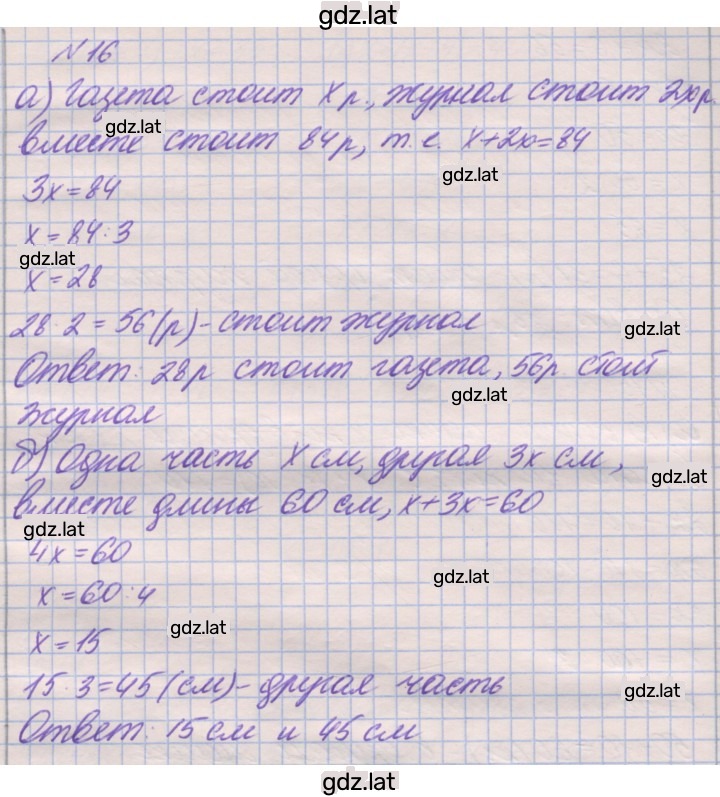 gdz.lat
№ 16
а) Газета стоит х р., журнал стоит 2х р
gdz.lat
вместе стоит 84 р, т. е. х+2х=84
gdz.lat
3х=84
х = 84:3
gdz.lat
х = 28
28·2 = 56 (р) - стоит журнал
gdz.lat
Ответ: 28р стоит газета, 56р стоит
gdz.lat
журнал
б) Одна часть х см, другая 3х см,
gdz.lat
вместе длины 60 см, х+3х=60
gdz.lat
4х=60
gdz.lat
х=60:4
gdz.lat
х=15
15·3=45 (см) - другая часть
gdz.lat
Ответ: 15 см и 45 см
gdz.lat